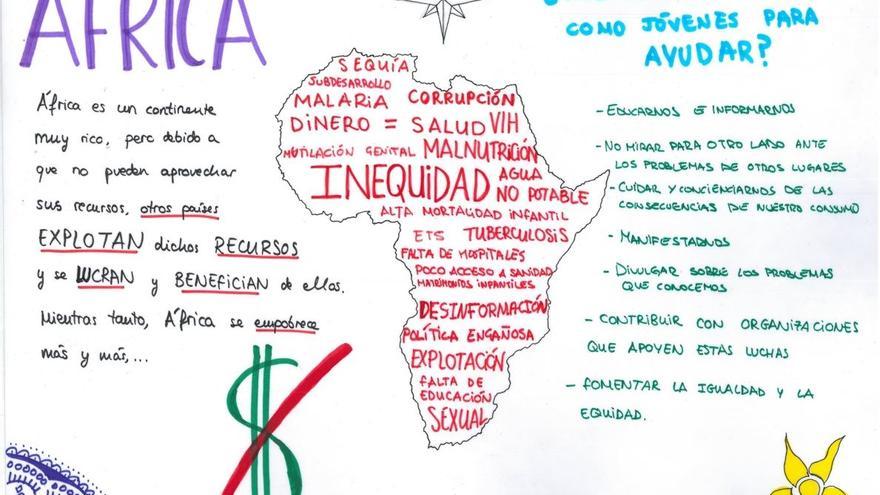 ÁFRICA
África es un continente
muy rico, pero debido a
que no pueden aprovechar
sus recursos, otros países
EXPLOTAN dichos RECURSOS
y se LUCRAN y BENEFICIAN de ellos.
Mientras tanto, África se empobrece
más y más,...
SEQUÍA
SUBDESARROLLO
MALARIA CORRUPCIÓN
DINERO = SALUD VIH
MUTILACIÓN GENITAL MALNUTRICIÓN
INEQUIDAD AGUA
NO POTABLE
ALTA MORTALIDAD INFANTIL
ETS TUBERCULOSIS
FALTA DE HOSPITALES
POCO ACCESO A SANIDAD
MATRIMONIOS INFANTILES
DESINFORMACIÓN
POLÍTICA ENGAÑOSA
EXPLOTACIÓN
FALTA DE
EDUCACIÓN
SEXUAL
COMO JÓVENES PARA
AYUDAR?
- EDUCARNOS E INFORMARNOS
- NO MIRAR PARA OTRO LADO ANTE
LOS PROBLEMAS DE OTROS LUGARES
- CUIDAR Y CONCIENCIARNOS DE LAS
CONSECUENCIAS DE NUESTRO CONSUMO
- MANIFESTARNOS
- DIVULGAR SOBRE LOS PROBLEMAS
QUE CONOCEMOS
- CONTRIBUIR CON ORGANIZACIONES
QUE APOYEN ESTAS LUCHAS
- FOMENTAR LA IGUALDAD Y LA
EQUIDAD.
$